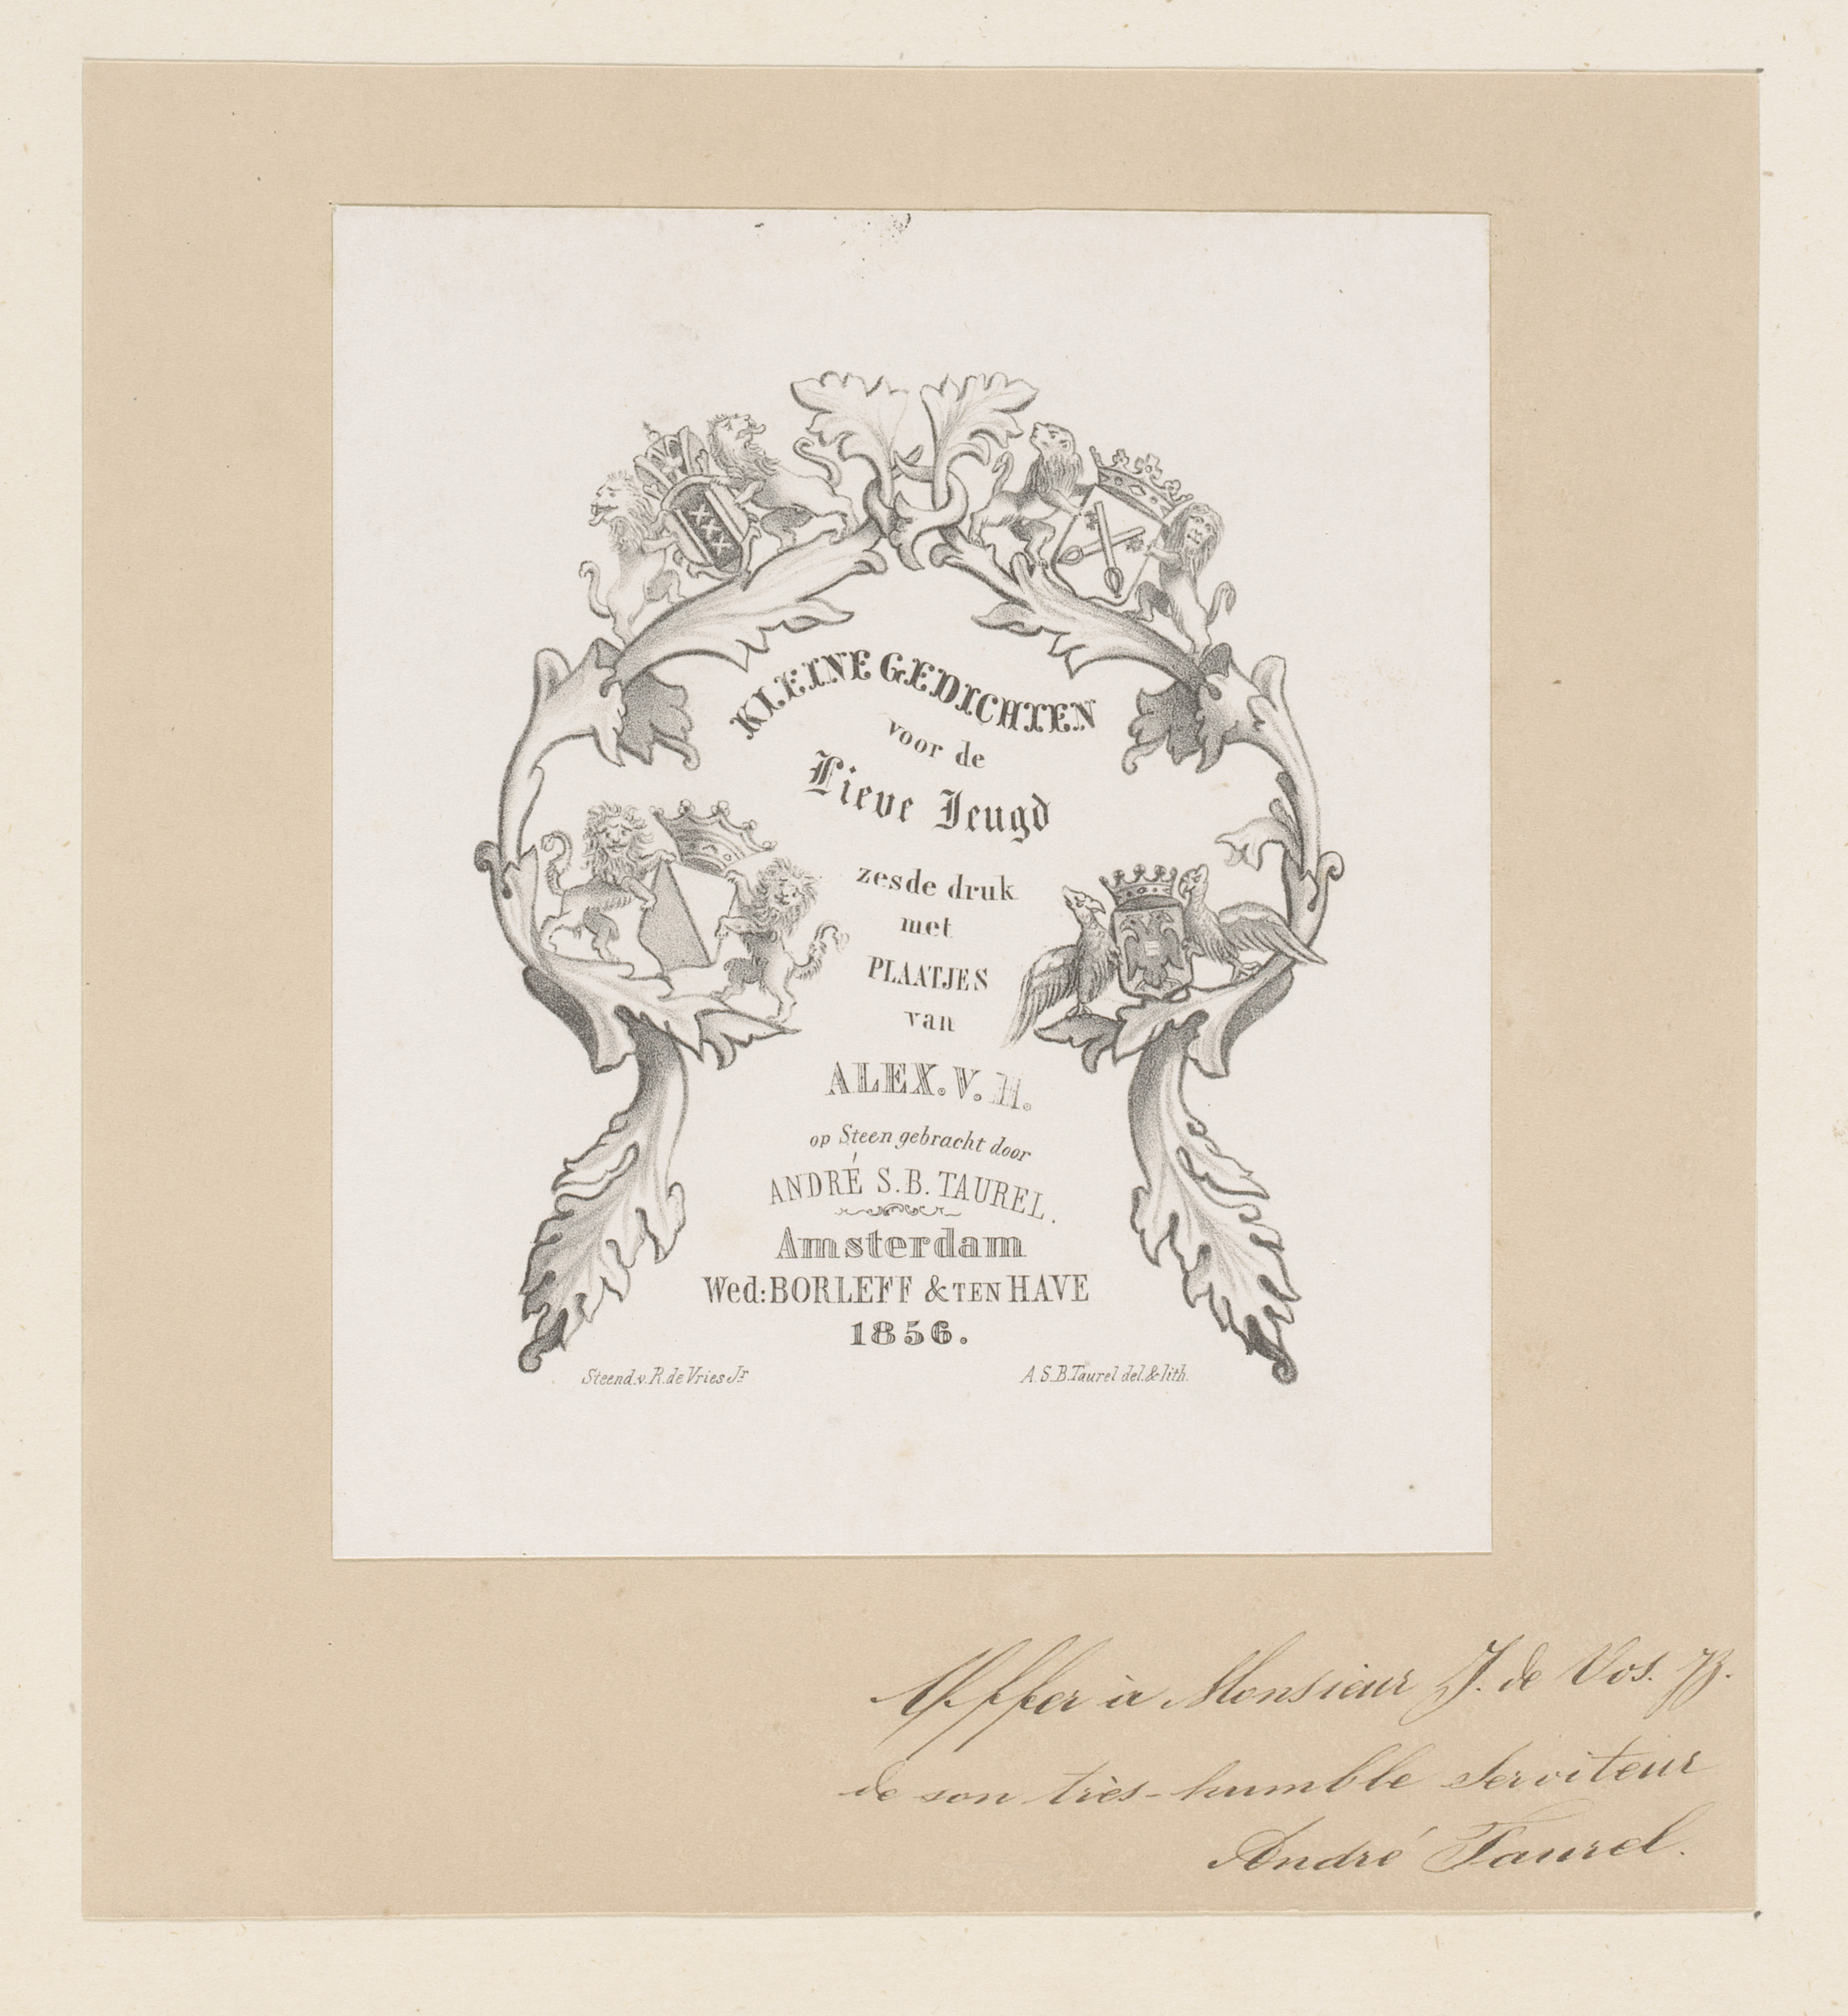 XXX
KLEINE GEDICHTEN
voor de
Lieve Jeugd
zesde druk
met
PLAATJES
van
ALEX. V. H.
op Steen gebracht door
ANDRÉ S. B. TAUREL.
Amsterdam
Wed: BORLEFF & TEN HAVE
1856.
Steend. v. R. de Vries Jr
A. S. B. Taurel del. & lith.
Offer à Monsieur J. de Vos. Jz.
de son très-humble Serviteur
André Taurel.